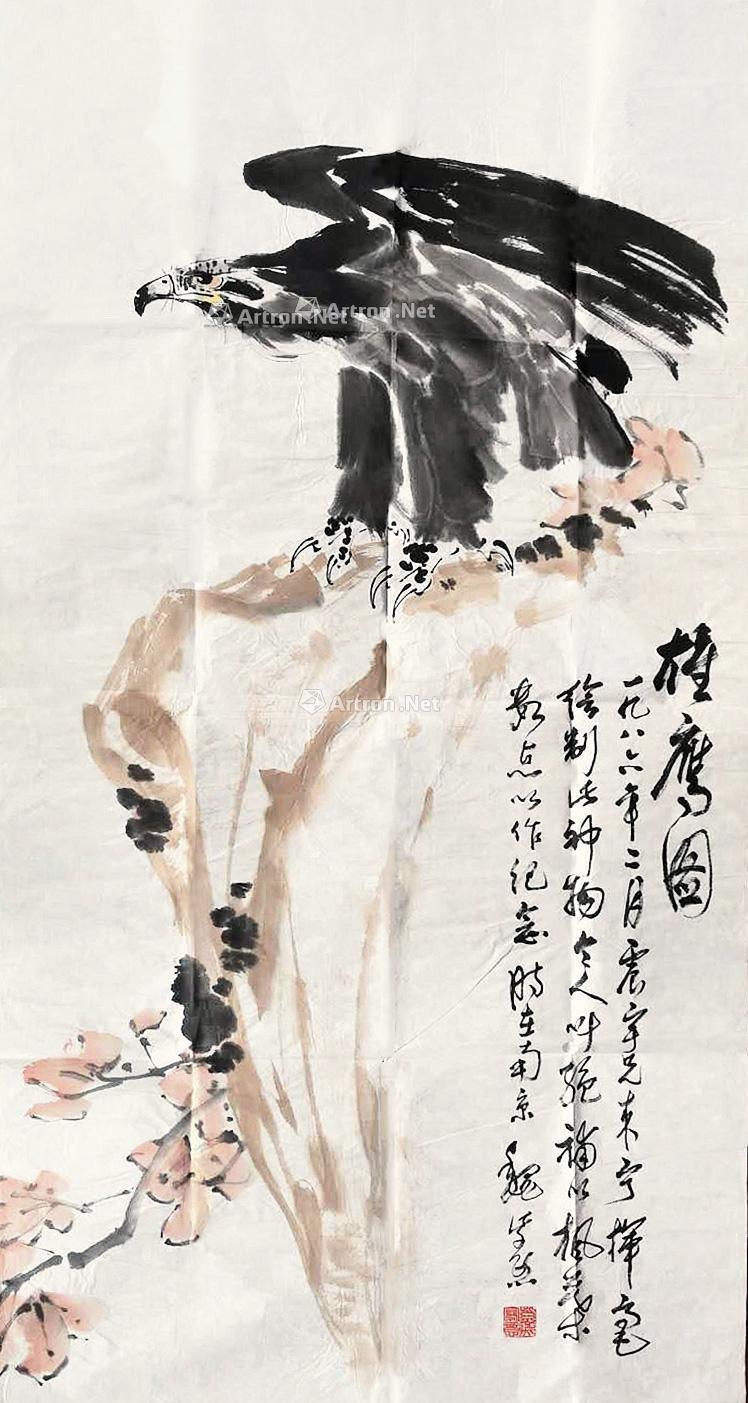 雄鹰图
一九八六年二月震宇兄来宁挥毫
绘制此神物令人叫绝补以枫叶
数点以作纪念时在南京魏
Artron.Net
Artron.Net
Artron.Net